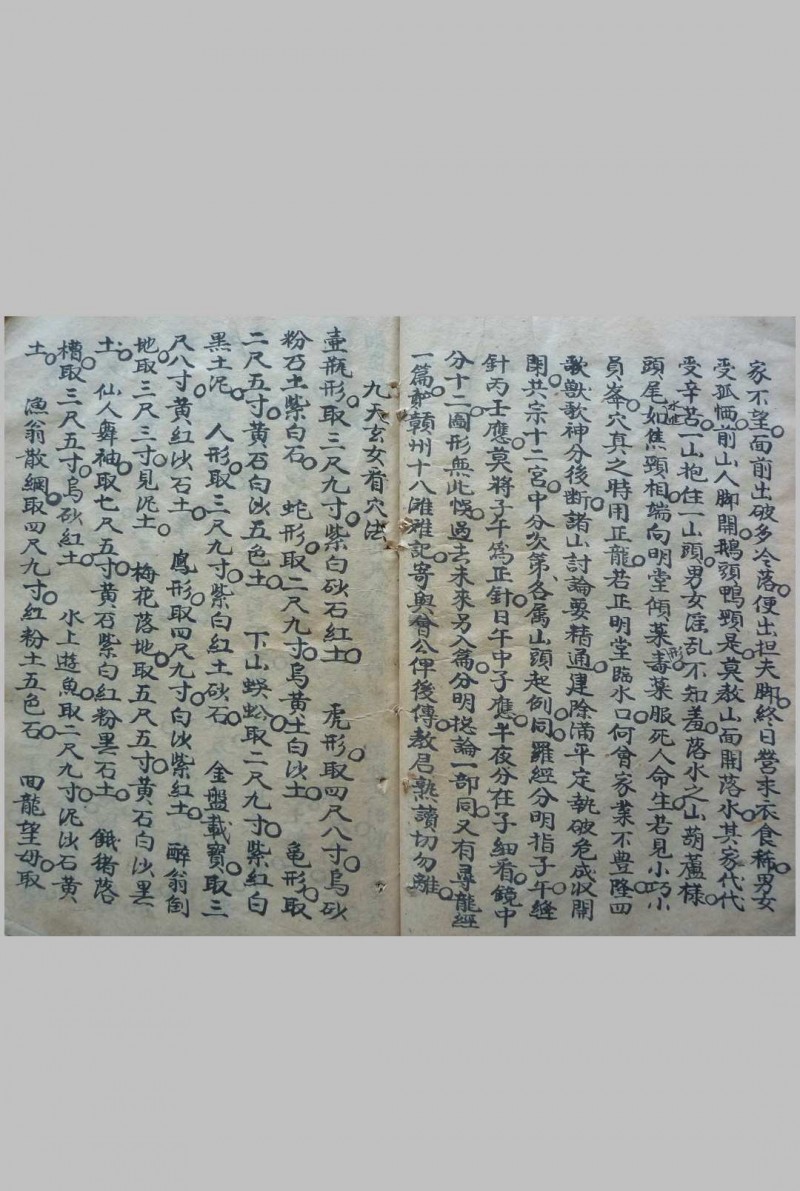 家不望。面前出破多冷落。便出担夫脚。終日營求衣食稀。男女
受孤恓。前山人脚開。鵝頭鴨頸是。莫教山面開落水。其家代代
受辛苦。一山抱住一山頭。男女淫乱不知羞。落水之山葫蘆樣。
頭尾如焦頸相端向明堂傾藥毒藥服死人命生若見小巧小
員峯。穴真之時用正龍。若正明堂臨水口。何曾家業不豊隆。四
歌獸歌神分後断。諸山討論要精通。建除滿平定執破危成收開
閉。共宗十二宮中分次第。各属山頭起例同。羅經分明指子午縫
針丙壬應。莫將子午爲正針。日午中子應。半夜分在子細看。鏡中
分十二圖形無此悮。過去未來另入篇。分明捴論一部同。又有尋龍經
一篇。贛州十八灘灘記。寄與曾公俾後傳。教君熟讀切勿離。
九天玄女看穴法
壷瓶形取三尺九寸。紫白砂石紅土。 虎形取四尺八寸。烏砂
粉石土紫白石。 蛇形取二尺九寸。烏黄土白沙土。 亀形取
二尺五寸。黄石白沙五色土。 下山蜈蚣取二尺九寸。紫紅白
黑土泥。 人形取三尺九寸。紫白紅土砂石。 金盤載寳。取三
尺八寸。黄紅沙石土。 鳳形取四尺九寸。白沙紫紅土。 醉翁倒
地取三尺三寸。見泥土。 梅花落地。取五尺五寸。黄石白沙黑
土。 仙人舞袖。取七尺五寸。黄石紫白紅粉黑石土。 餓猪落
槽取三尺五寸。烏砂紅土。 水上遊魚。取二尺九寸。泥沙石黄
土。 漁翁散網。取四尺九寸。紅粉土五色石。 回龍望母。取